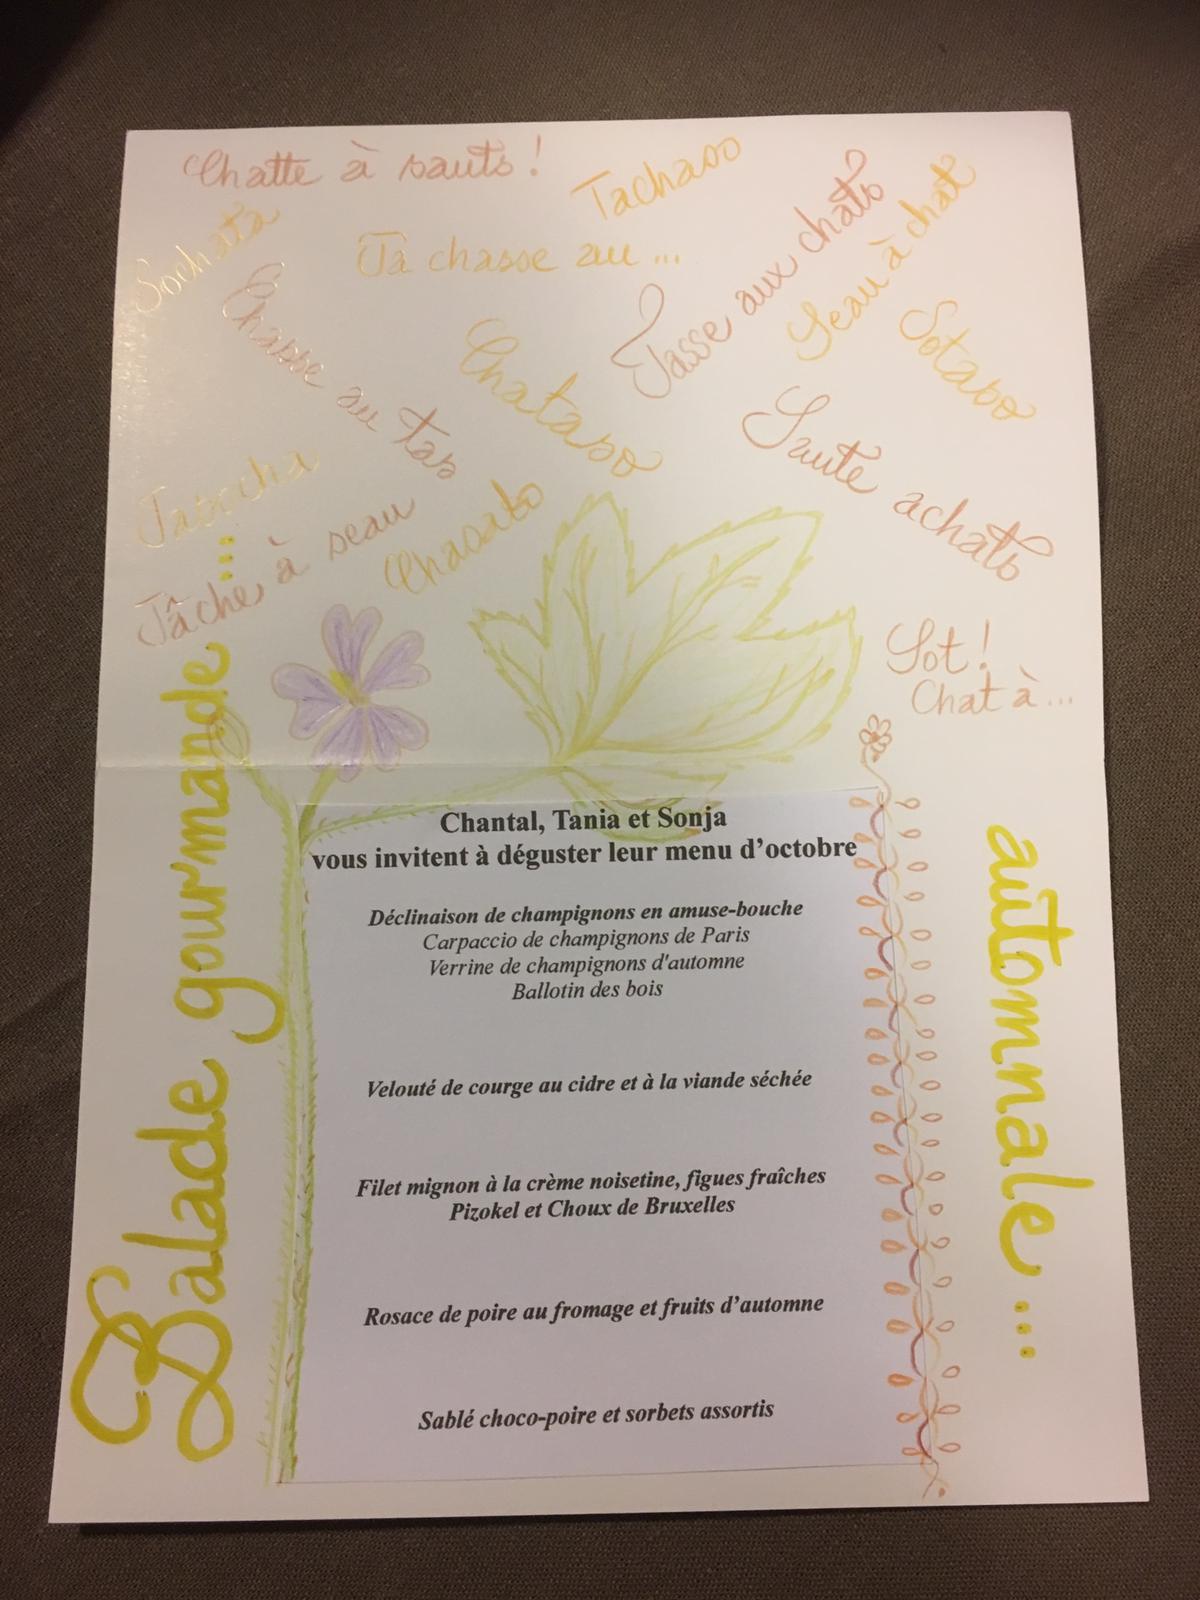 Chatte à sauts !
Tachaso
Sochata
Ta chasse au ...
Tasse aux chats
Seau à chat
Chasse au tas
Chataso
Sotaso
Saute achats
Tasocha
Tâche à seau
Chasato
Sot !
Chat à ...
Balade gourmande ...
automnale ...
Chantal, Tania et Sonja
vous invitent à déguster leur menu d’octobre
Déclinaison de champignons en amuse-bouche
Carpaccio de champignons de Paris
Verrine de champignons d'automne
Ballotin des bois
Velouté de courge au cidre et à la viande séchée
Filet mignon à la crème noisetine, figues fraîches
Pizokel et Choux de Bruxelles
Rosace de poire au fromage et fruits d’automne
Sablé choco-poire et sorbets assortis